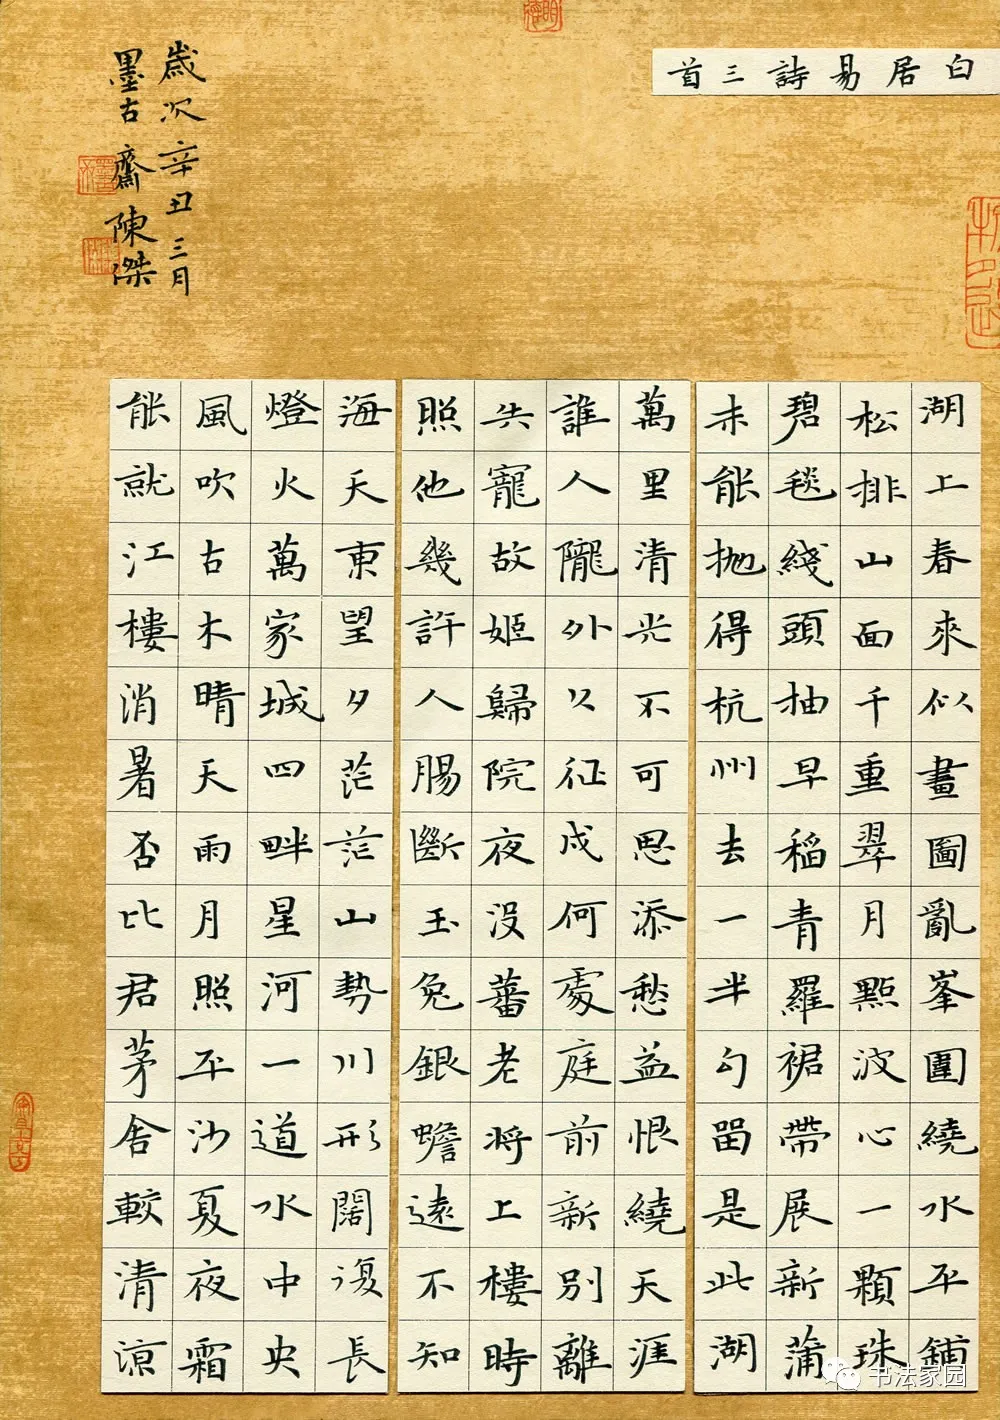 白居易詩三首
湖上春來似畫圖亂峯圍繞水平鋪
松排山面千重翠月點波心一顆珠
碧毯綫頭抽早稻青羅裙帶展新蒲
未能抛得杭州去一半勾留是此湖
萬里清光不可思添愁益恨繞天涯
誰人隴外久征戍何處庭前新別離
失寵故姬歸院夜沒蕃老將上樓時
照他幾許人腸斷玉兔銀蟾遠不知
海天東望夕茫茫山勢川形闊復長
燈火萬家城四畔星河一道水中央
風吹古木晴天雨月照平沙夏夜霜
能就江樓消暑否比君茅舍較清涼
歲次辛丑三月
墨古齋陳傑
书法家园